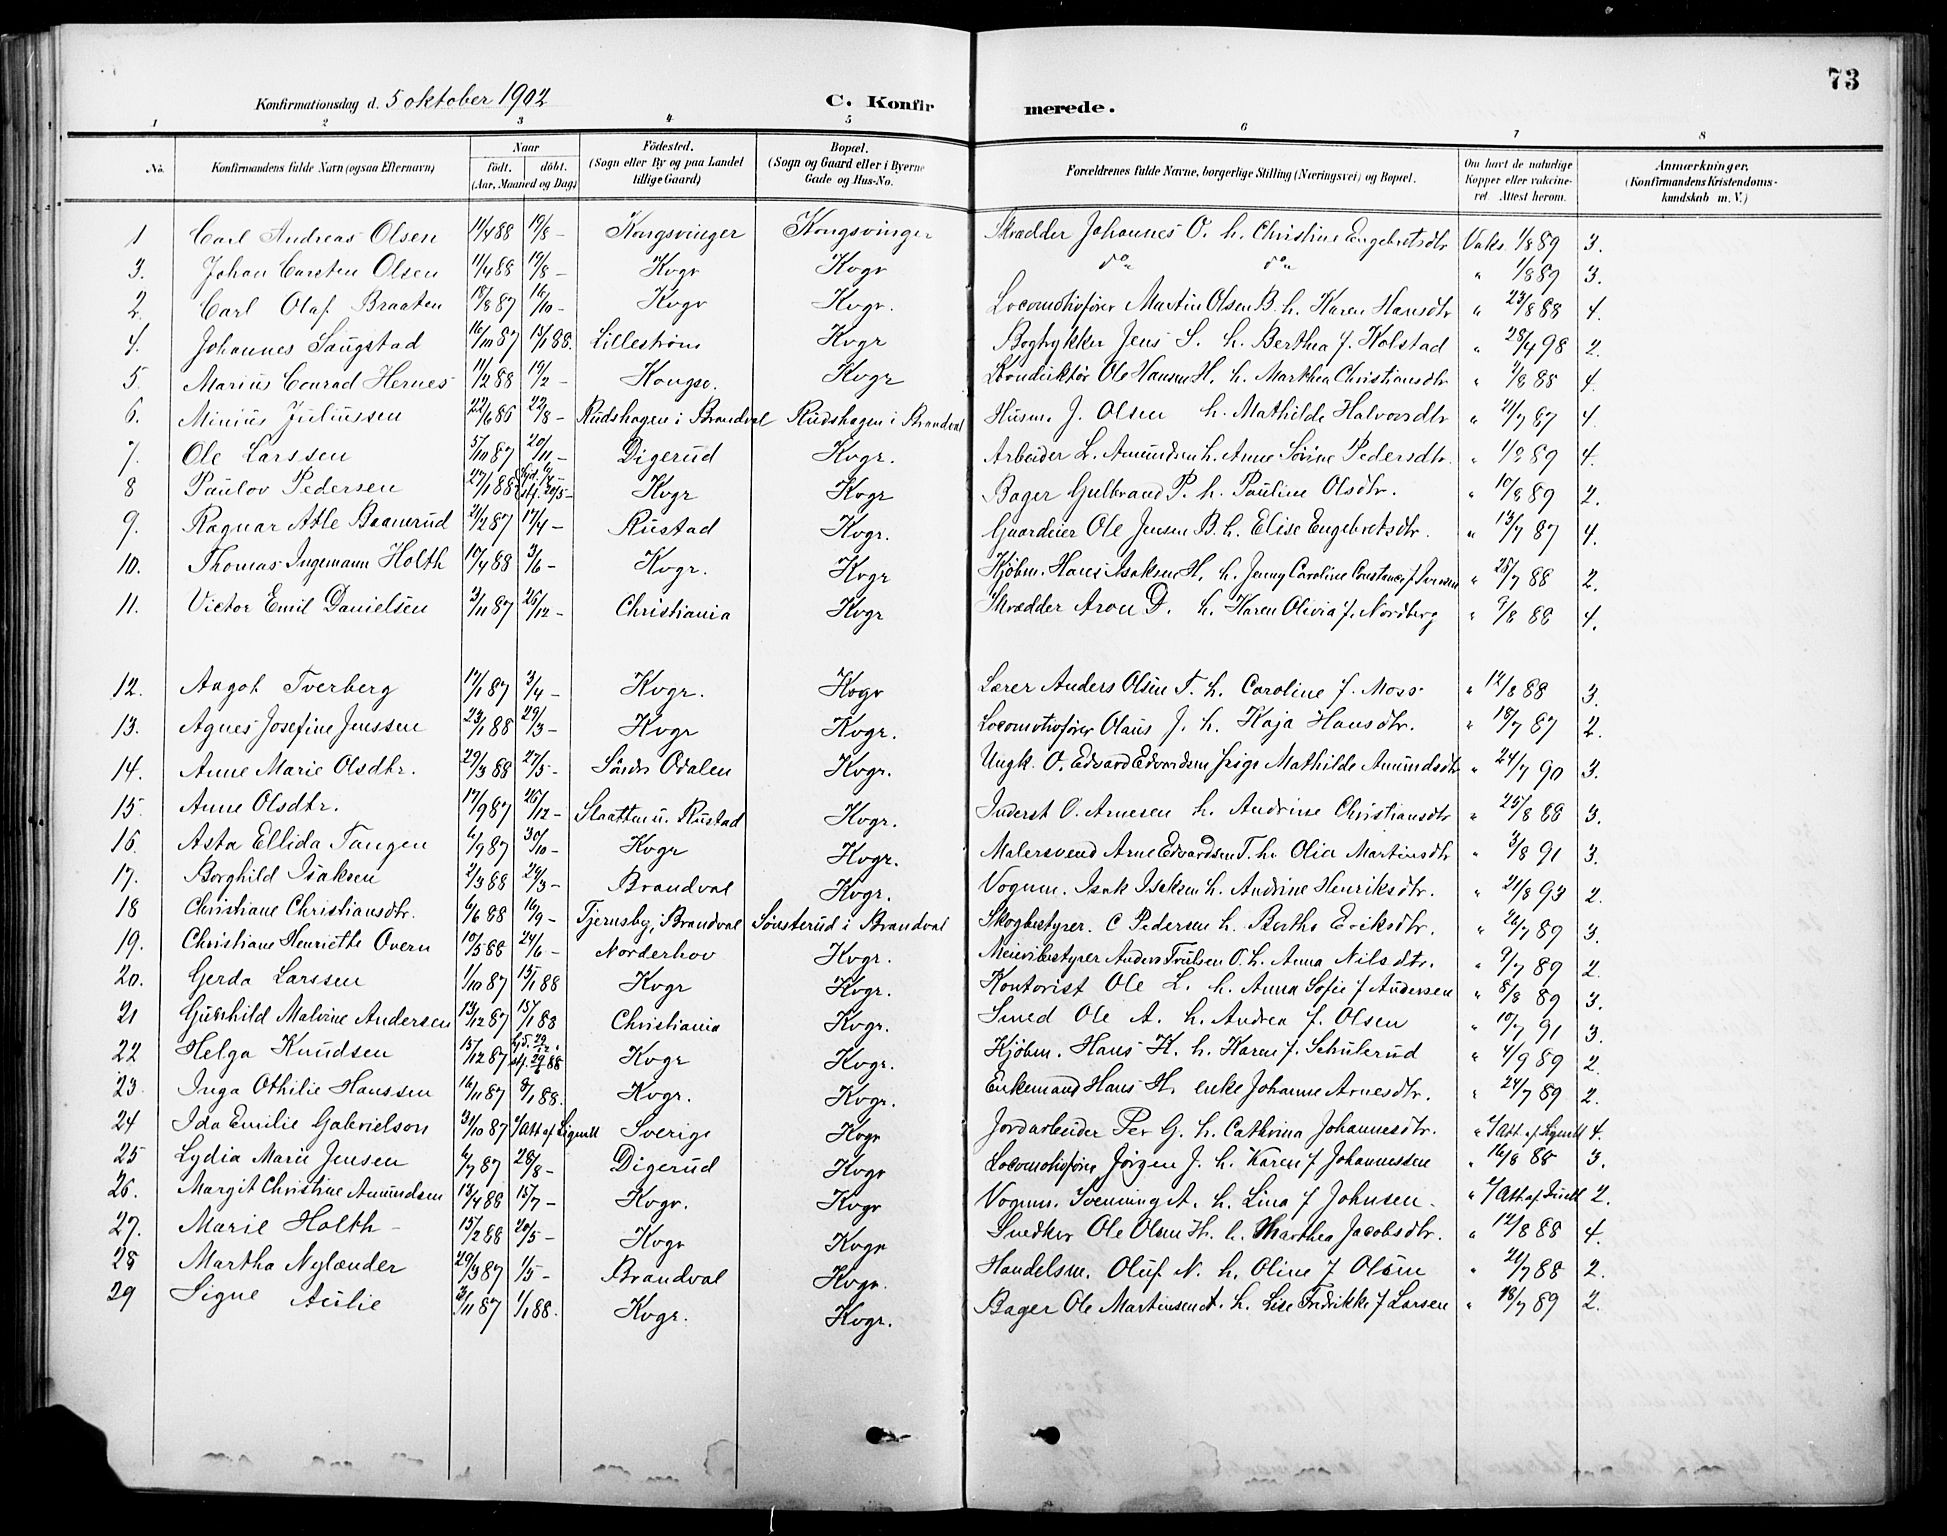 73
Konfirmationsdag d. 5 oktober 1902 C. Konfirmerede.
1 2 3 4 5 6 7 8
No. Konfirmandens fulde Navn (ogsaa Efternavn) Naar födt. döbt. (Aar, Maaned og Dag) Födested. (Sogn eller By og paa Landet tillige Gaard) Bopæl. (Sogn og Gaard eller i Byerne Gade og Hus-No. Forældrenes fulde Navne, borgerlige Stilling (Næringsvei) og Bopæl. Om havt de naturlige Kopper eller vakcineret Attest herom. Anmærkninger, (Konfirmandens Kristendomskundskab m. V.)
1 Carl Andreas Olsen 11/4 88 19/8 - Kongsvinger Kongsvinger Skrædder Johannes O. h. Christine Engebretsdtr Vaks. 1/8 89 3.
3. Johan Carsten Olsen 11/4 88 19/8 - Kvgr Kvgr do do " 1/8 89 3.
2. Carl Olaf Braaten 18/8 87 16/10 - Kvgr Kvgr. Locomotivfører Martin Olsen B. h. Karen Hansdtr " 23/8 88 4.
4. Johannes Saugstad 16/10 87 15/1 88. Lillestrøm Kvgr Bogtrykker Jens S. h. Berthea f. Kolstad " 28/4 98 2.
5. Marius Conrad Hernes 11/2 88 19/2 - Kongsv. Kvgr Konduktør Ole Hansen H. h. Marthea Christiansdtr " /8 88 4.
6. Minius Juliussen 22/6 86 22/8 - Rudshagen i Brandval Rudshagen i Brandval Husm. J. Olsen h. Mathilde Halvorsdtr " 21/7 87 4.
7. Ole Larssen 5/10 87 20/11 - Digerud Kvgr. Arbeider L. Amundsen h. Anne Sørine Pedersdtr. " 89 4.
8 Paulov Pedersen 27/1 88 stf. 20/5 - Kvgr Kvgr Bager Gulbrand P. h. Pauline Olsdtr. " 10/8 89 2.
9. Ragnar Atle Baanerud 2/2 87 17/4 - Rustad Kvgr. Gaardeier Ole Jensen B. h. Elise Engebretsdtr. " 13/7 87 4.
10. Thomas Ingemann Holth 10/4 88 3/6 - Kvgr. Kvgr Kjøbm. Hans Isaksen H. h. Jenny Caroline Constance f. Iversen " 28/7 88 2.
11. Victor Emil Danielsen 3/11 87 26/12 - Christiania Kvgr Skrædder Aron D. h. Karen Olivia f. Nordberg " 9/8 88 4.
12. Aagot Tverberg 17/1 87 3/4 - Kvgr. Kvgr Lærer Anders Olsen T. h. Caroline f. Moss " 12/8 88 3.
13. Agnes Josefine Jenssen 23/1 88 29/3 - Kvgr Kvgr. Locomotivfører Olaus J. h. Kaja Hansdtr. " 18/7 87 2.
14. Anne Marie Olsdtr. 29/3 88 27/5 - Søndre Odalen Kvgr. Ungk. O. Edvard Edvardsen Pige Mathilde Amundsdtr " 24/7 90 3.
15. Anne Olsdtr. 17/9 87 26/12 - Slaatten u. Rustad Kvgr. Inderst O. Arnesen h. Andrine Christiansdtr " 25/8 88 3.
16. Asta Ellida Tangen 6/9 87 30/10 - Kvgr Kvgr. Malersvend Arne Edvardsen T. h. Olia Martinsdtr " 3/8 91 3.
17. Borghild Isaksen 2/3 88 24/3 - Brandval Kvgr. Vognm. Isak Isaksen h. Andrine Henriksdtr. " 21/8 93 2.
18 Christiane Christiansdtr. 6/6 88 16/9 - Tjernsby, Brandval Sønsterud i Brandval Skogbestyrer. C Pedersen h. Berthe Eriksdtr. " 26/7 89 3.
19. Christiane Henriette Overn 10/5 88 24/6 - Norderhov Kvgr. Meieribestyrer Anders Trulsen O. h. Anna Nilsdtr. " 9/7 89 2.
20. Gerda Larssen 1/10 87 15/1 88 Kvgr Kvgr. Kontorist Ole L. h. Anna Sofie f Andersen " 8/8 89 3.
21 Gunhild Malvine Andersen 13/12 87 15/1 88 Christiania Kvgr. Smed Ole A. h. Andrea f. Olsen " 10/7 91 3.
22 Helga Knudsen 15/12 87 88 Kvgr Kvgr. Kjøbm. Hans K. h. Karen f. Schulerud " 4/9 89 2.
23. Inga Othilie Hanssen 16/11 87 8/1 88. Kvgr. Kvgr. Enkemand Hans H. enke Johanne Arnesdtr. " 24/7 89 2.
24 Ida Emilie Gabrielson 31/10 87 Att af Sverige Kvgr Jordarbeider Per G. h. Cathrina Johannesdtr. " Att. af 4.
25 Lydia Marie Jensen 6/7 87 28/8 - Digerud Kvgr Locomotivfører Jørgen J. h. Karen f Johannessen " 16/8 88 3.
26. Margit Christine Amundsen 13/4 88 15/7 - Kvgr. Kvgr Vognm. Svenning A. h. Lina f Johnsen. " Att af 2.
27. Marie Holth - 15/2 88 20/5 - Kvgr Kvgr Snedker Ole Olsen H. h. Marthea Jacobsdtr. " 12/8 88 4.
28 Martha Nylænder 29/3 87 1/5 - Brandval Kvgr. Handelsm. Oluf N. h. Oline f Olsen " 21/7 88 2.
29 Signe Aulie 3/11 87 1/1 88. Kvgr. Kvgr. Bager Ole Martinsen A. h. Lise Fredrikke f Larsen " 18/7 89 2.